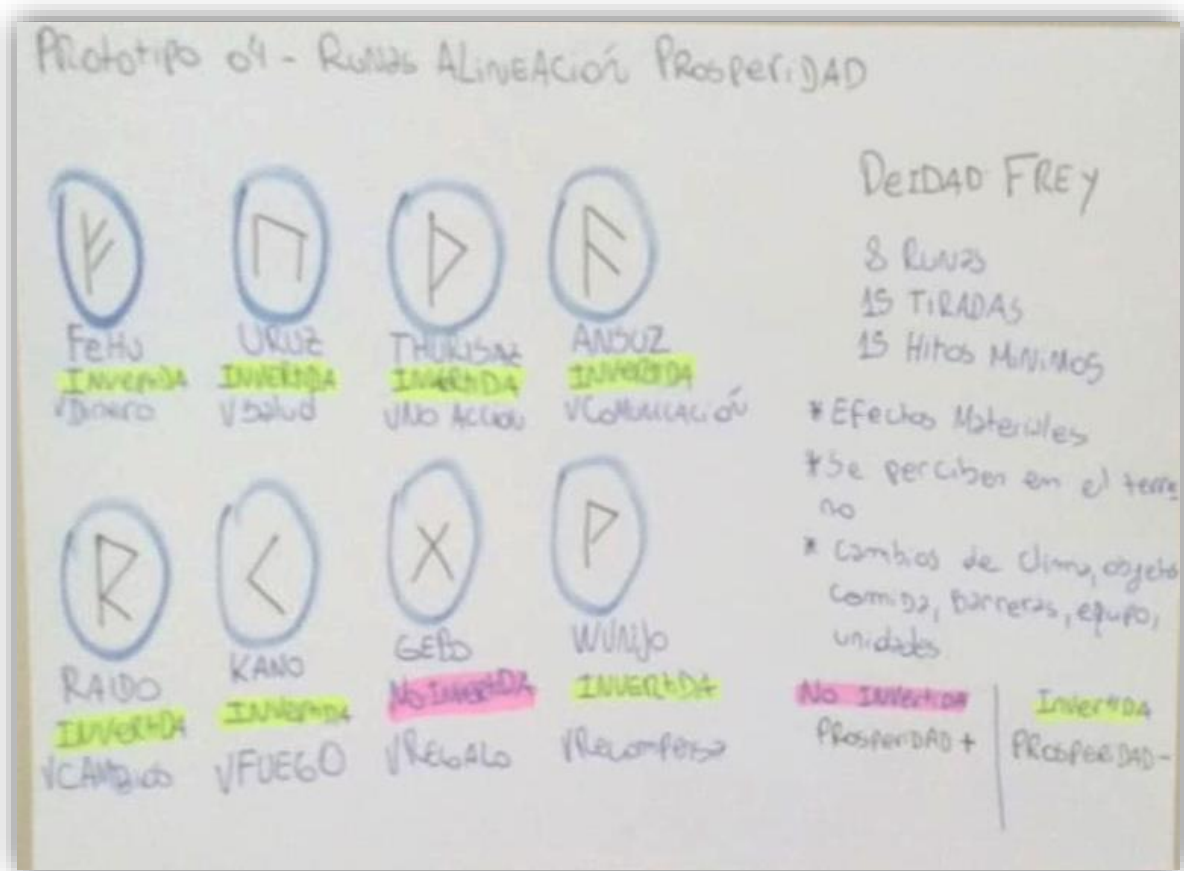 Prototipo 04 - Runas ALineación Prosperidad
FeHu
INVERTIDA
√Dinero
URUZ
INVERTIDA
√Salud
THURISAZ
INVERTIDA
√NO ACCION
ANSUZ
INVERTIDA
√COMUNICACIÓN
RAIDO
INVERTIDA
√CAMBIOS
KANO
INVERTIDA
√FUEGO
GEBO
No INVERTIDA
√REGALO
WUNJO
INVERTIDA
√Recompensa
DeIDAD FREY
8 RUNAS
15 TIRADAS
15 Hitos MíNiMOS
* Efectos Materiales
* Se perciben en el terre
no
* Cambios de clima, objeto
comida, barreras, equipo,
unidades
No INVERTIDA
PROSPERIDAD +
INVERTIDA
PROSPERIDAD -